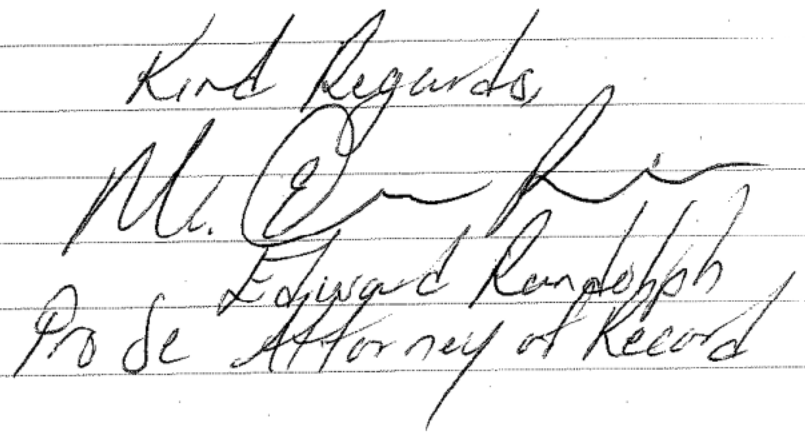 Kind Regards,
Mr.
Edward Randolph
Pro Se Attorney of Record